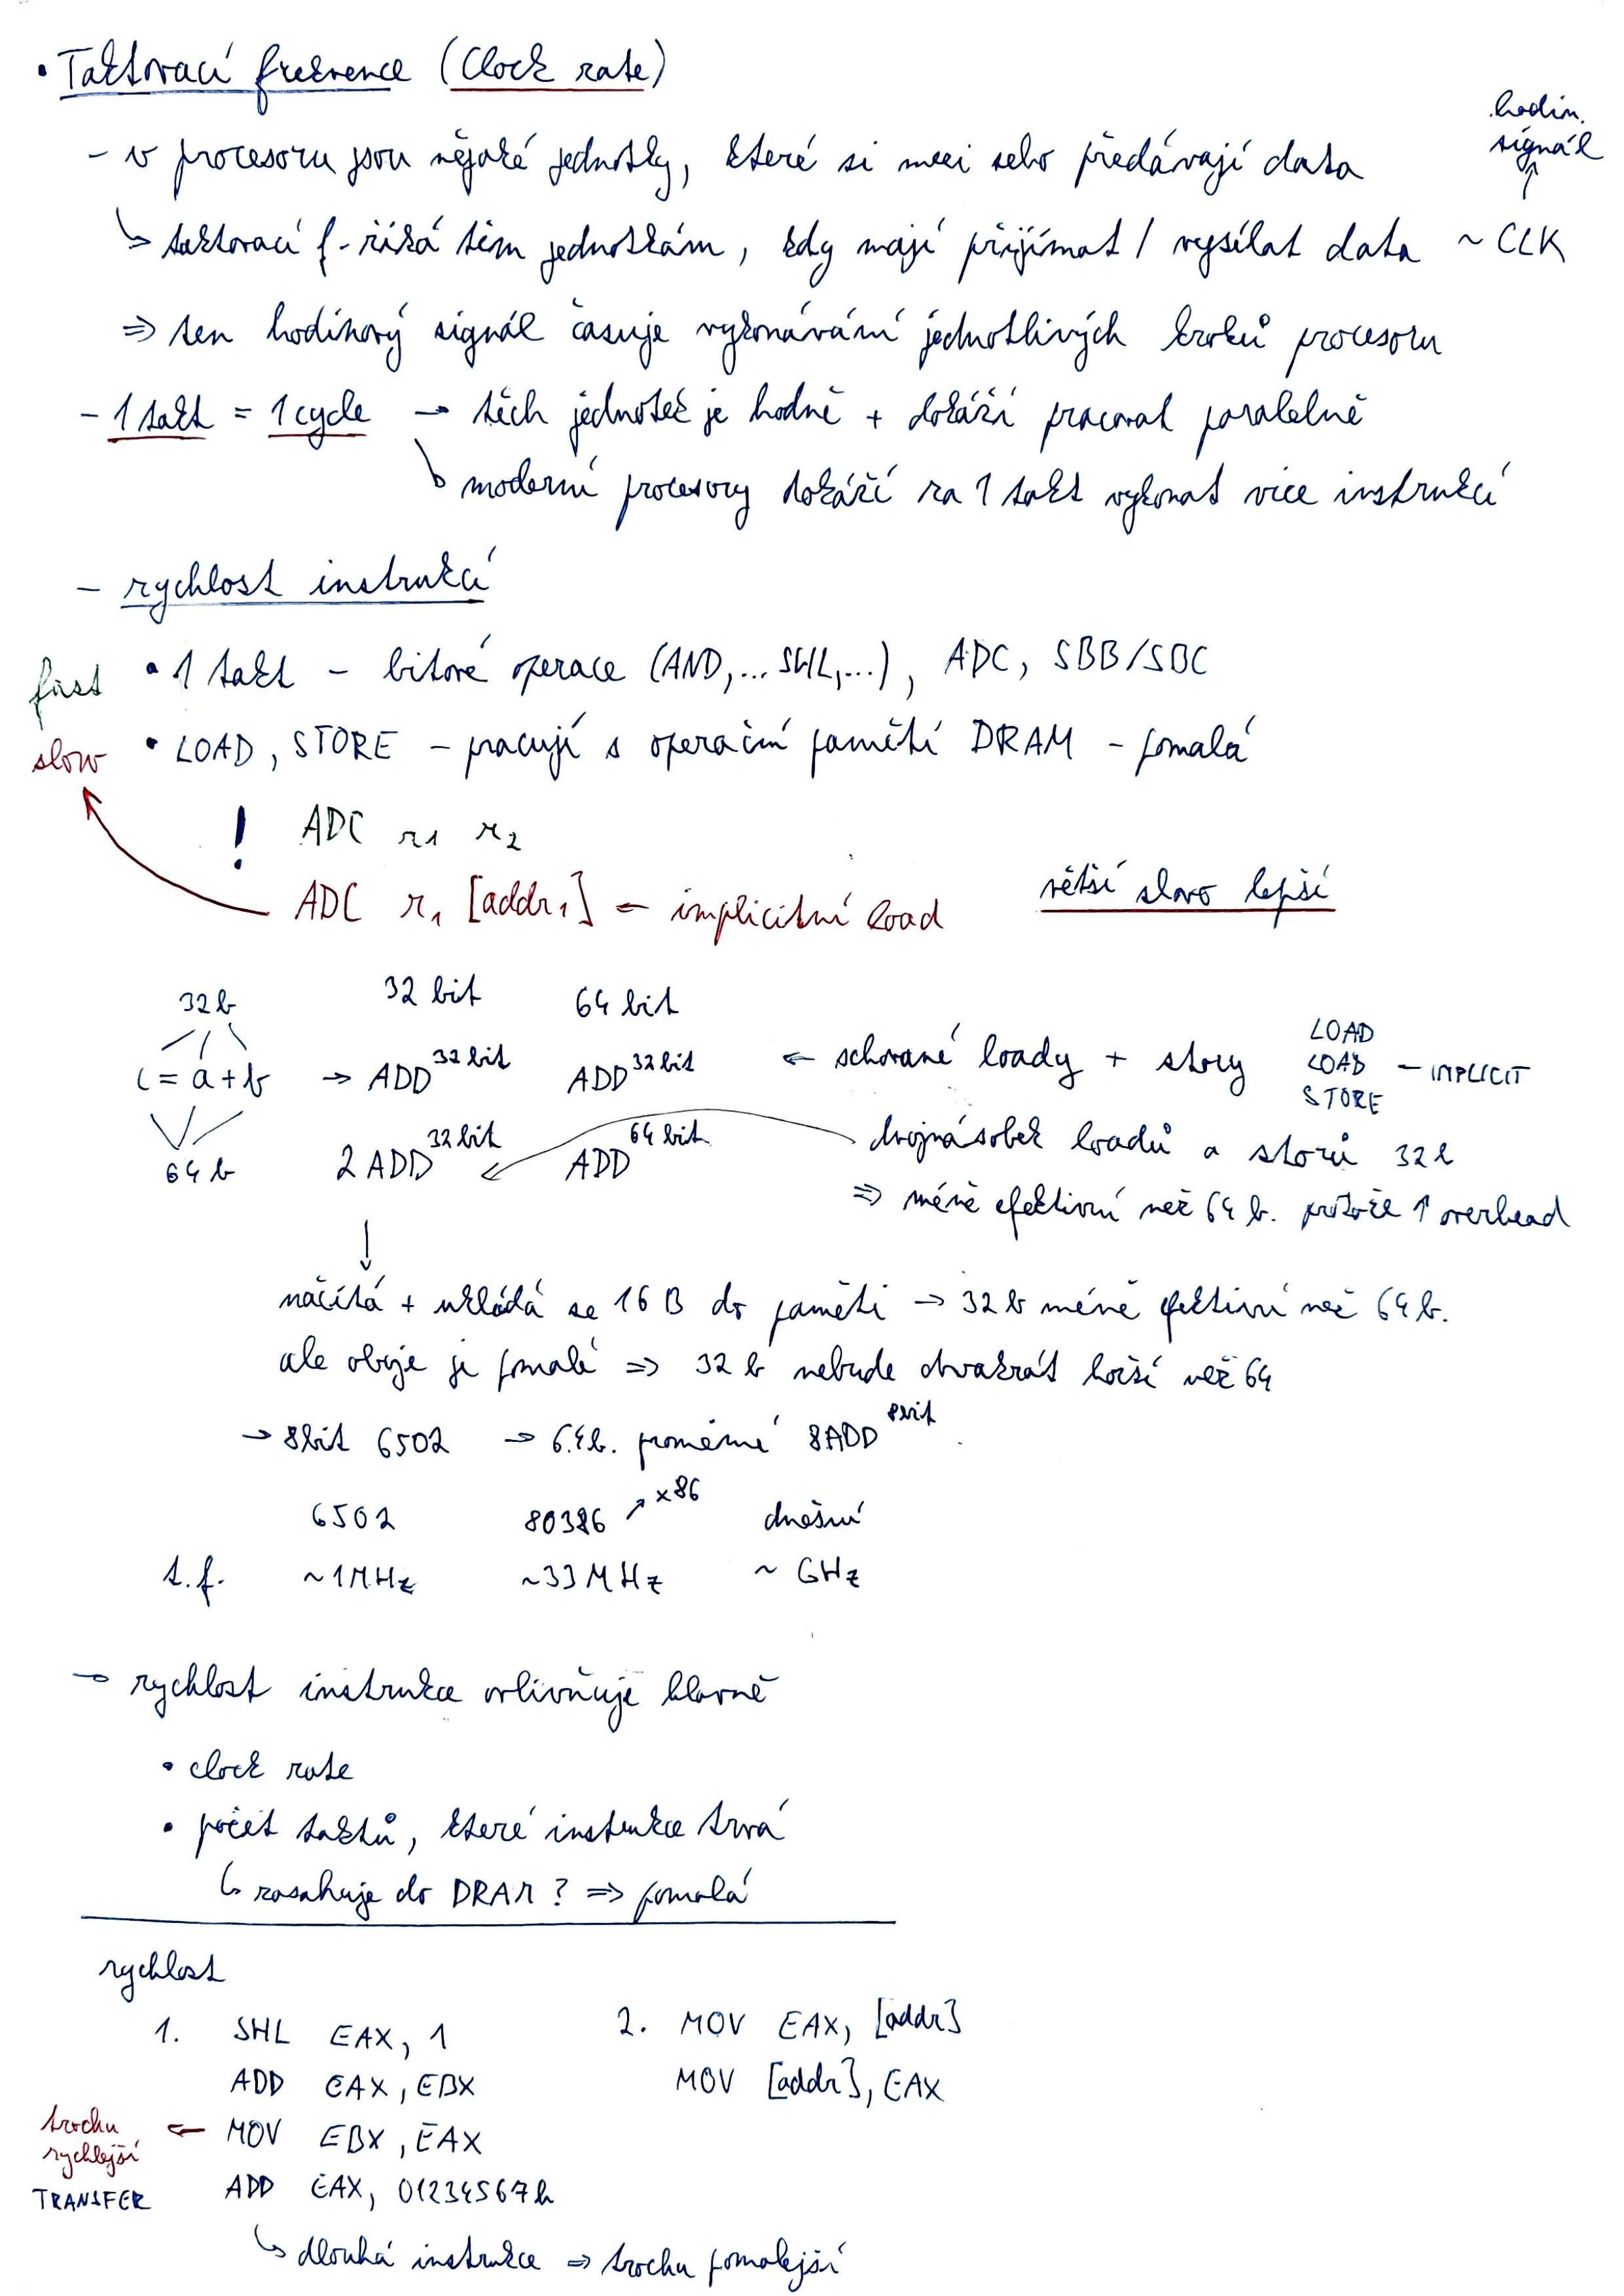 • Taktovací frekvence (Clock rate)
hodin.
signál
- v procesoru jsou nějaké jednotky, které si mezi sebo předávají data
↳ taktovací f - říká těm jednotkám, kdy mají přijímat / vysílat data ~ CLK
⇒ ten hodinový signál časuje vykonávání jednotlivých kroků procesoru
- 1 takt = 1 cycle → těch jednotek je hodně + dokáží pracovat paralelně
↳ moderní procesory dokáží za 1 takt vykonat více instrukcí
- rychlost instrukcí
fast • 1 takt - bitové operace (AND,... SHL,...), ADC, SBB/SBC
slow • LOAD, STORE - pracují s operační pamětí DRAM - pomalá
! ADC r1 r2
ADC r1 [addr1] ← implicitní load
větší slovo lepší
32b 32 bit 64 bit
c = a + b → ADD 32bit ADD 32bit ← schované loady + story
LOAD
LOAD - IMPLICIT
STORE
64 b 2 ADD 32bit ADD 64 bit
dvojnásobek loadů a storů 32b
⇒ méně efektivní než 64 b. protože ↑ overhead
↓
načítá + ukládá se 16 B do paměti → 32 b méně efektivní než 64 b.
ale oboje je pomalé ⇒ 32 b nebude dvakrát horší než 64
→ 8bit 6502 → 64b. proměnné 8ADD 8bit
6502 80386 ↗ x86 dnešní
t.f. ~1MHz ~33 MHz ~ GHz
→ rychlost instrukce ovlivňuje hlavně
• clock rate
• počet taktů, které instrukce trvá
↳ zasahuje do DRAM? ⇒ pomalá
rychlost
1. SHL EAX, 1
ADD EAX, EBX
trochu rychlejší ← MOV EBX, EAX
TRANSFER ADD EAX, 01234567h
↳ dlouhá instrukce ⇒ trochu pomalejší
2. MOV EAX, [addr]
MOV [addr], EAX